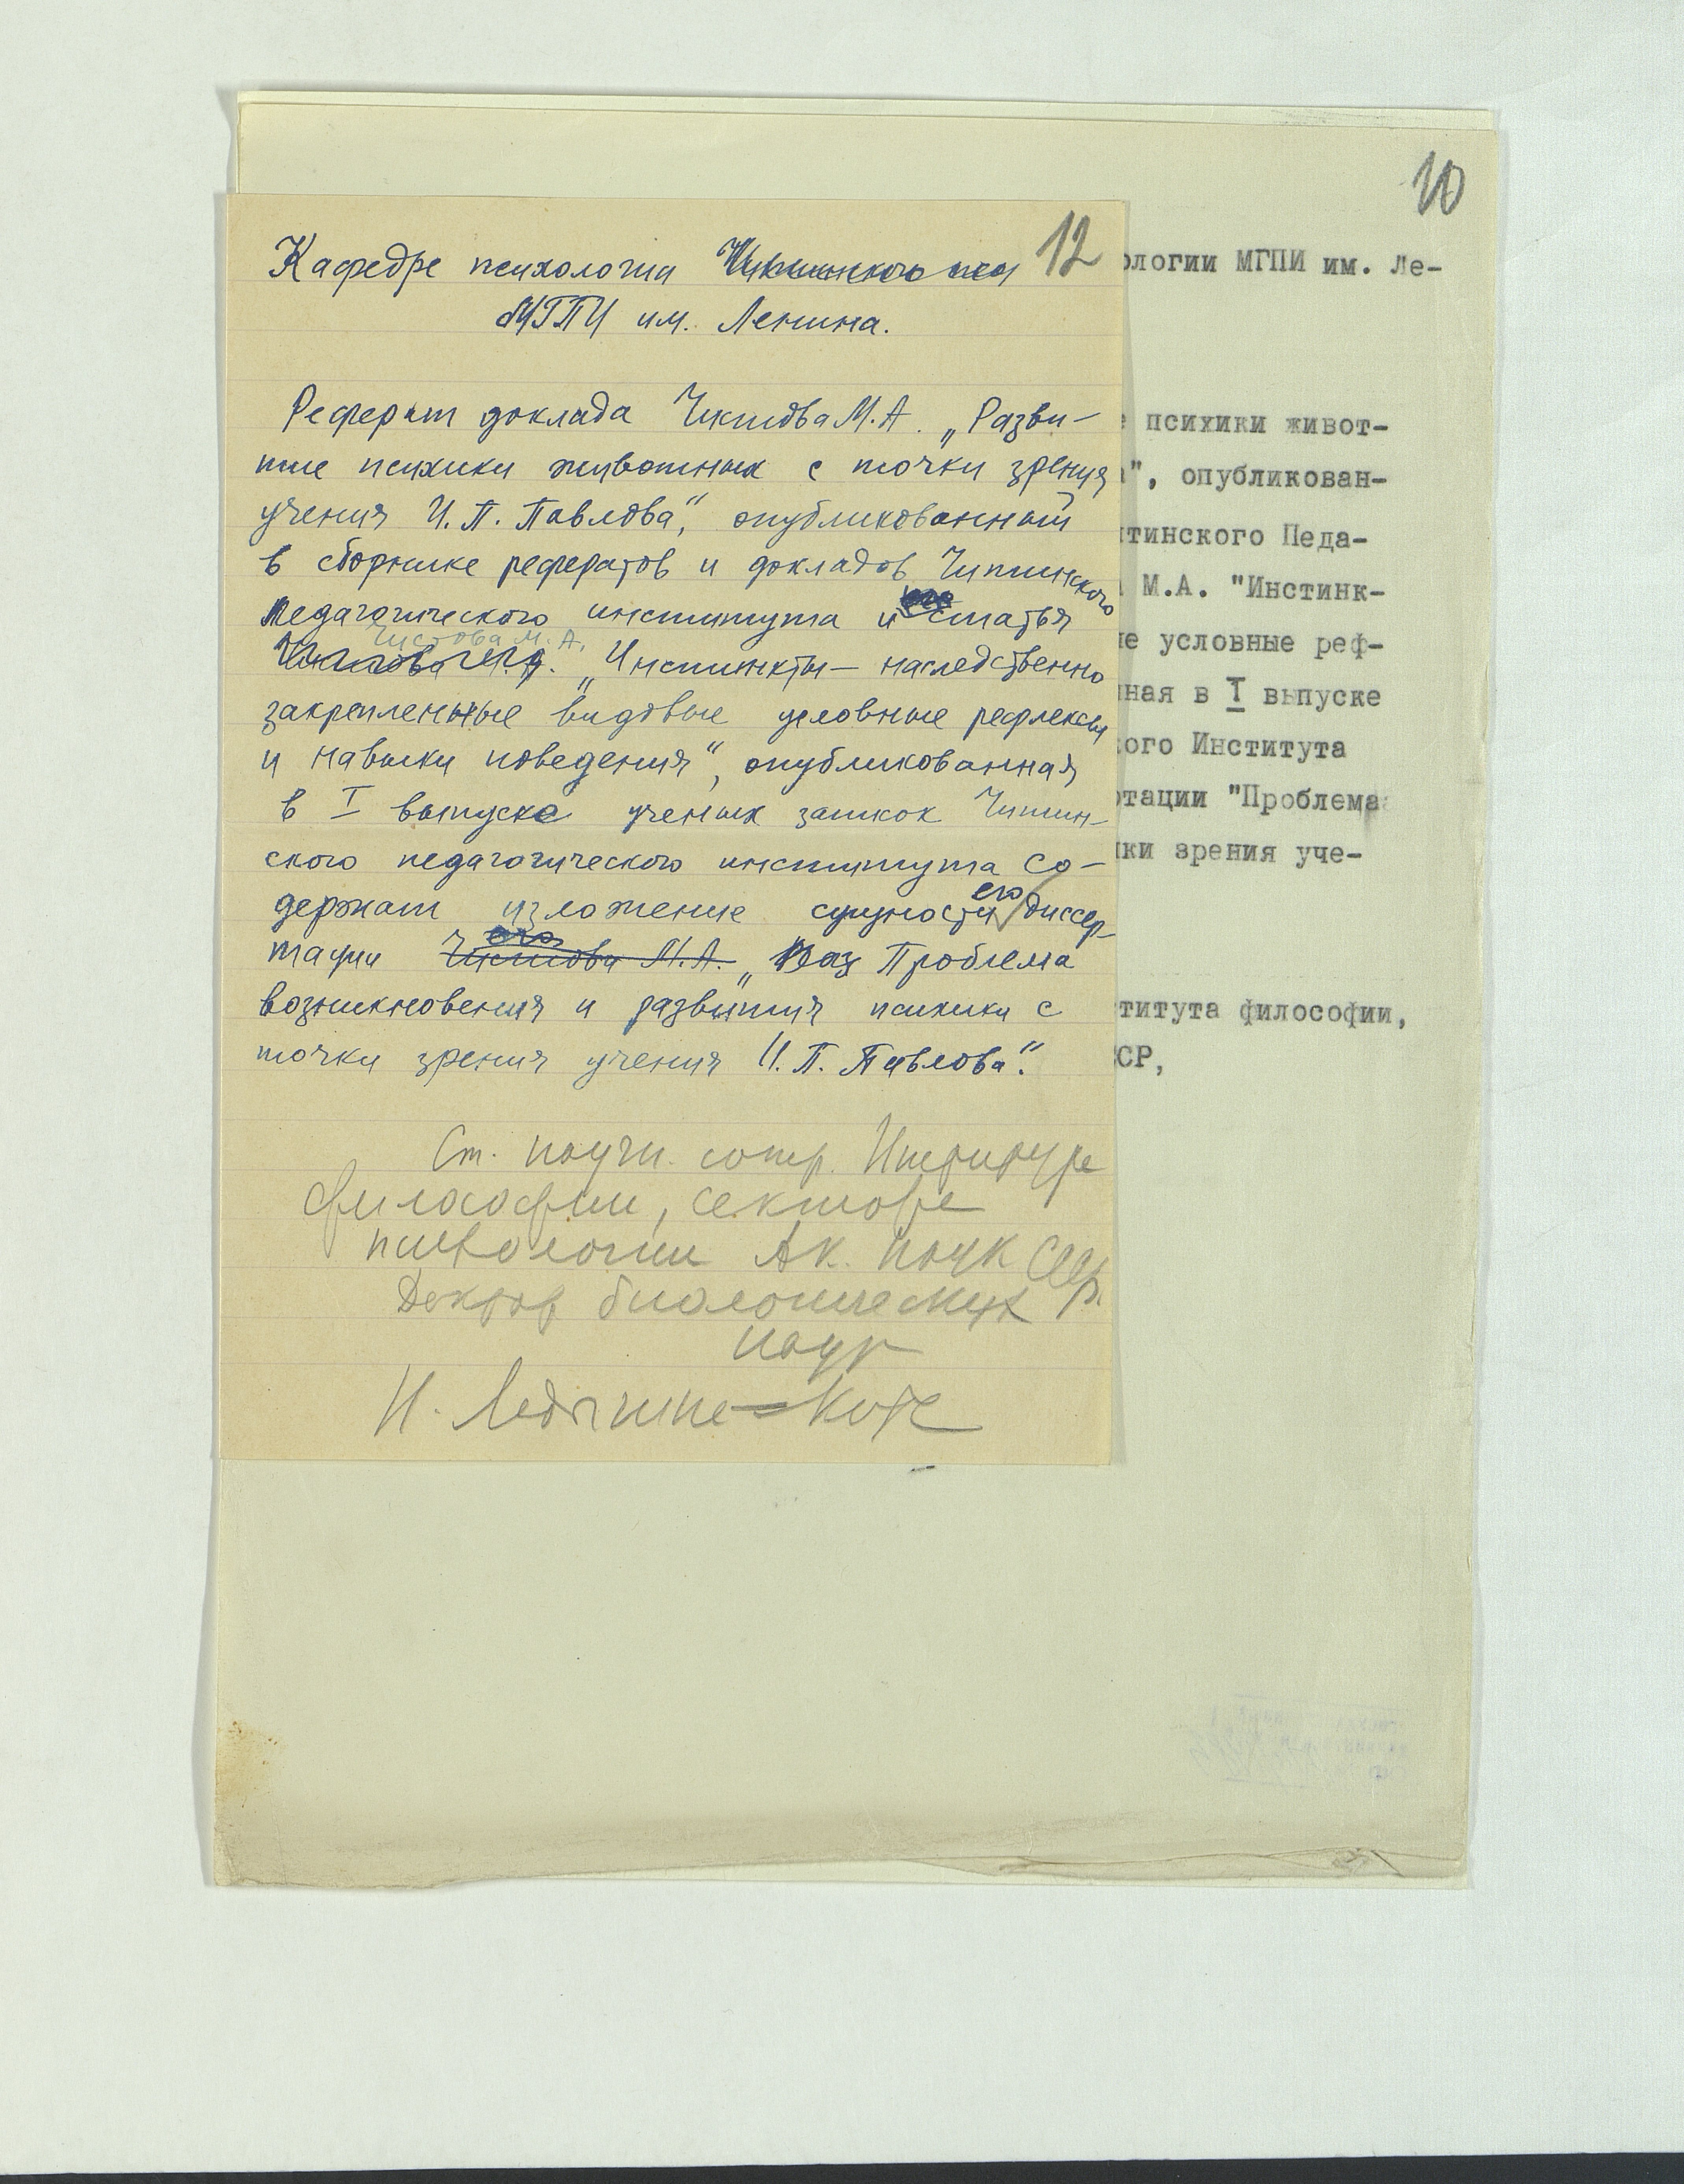 10
12
Кафедре психологии Читинского пед
МГПИ им. Ленина.
Реферат доклада Чистова М.А. „Разви-
тие психики животных с точки зрения
учения И. П. Павлова“, опубликованный
в сборнике рефератов и докладов Читинского
педагогического института и его статья
Чистова М. А.
Чистова М.А. „Инстинкты — наследственно
закрепленные видовые условные рефлексы
и навыки поведения“, опубликованная
в I выпуске ученых записок Читин-
ского педагогического института со-
держат изложение сущности его диссер-
тации его Чистова М.А. „Проблема
возникновения и развития психики с
точки зрения учения И. П. Павлова“.
Ст. научн. сотр. Института
философии, сектора
психологии Ак. Наук СССР.
Доктор биологических
наук
Н. Ладыгина-Котс
ологии МГПИ им. Ле-
е психики живот-
а", опубликован-
итинского Педа-
а М.А. "Инстинк-
ые условные реф-
нная в I выпуске
кого Института
ртации "Проблема
чки зрения уче-
ститута философии,
ССР,